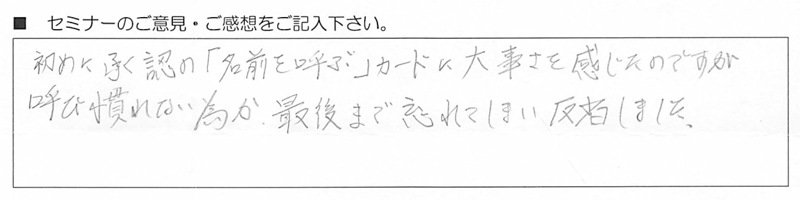 ■ セミナーのご意見・ご感想をご記入下さい。
初めに承く認の「名前を呼ぶ」カードに大事さを感じたのですが
呼び慣れない為か、最後まで忘れてしまい反省しました。